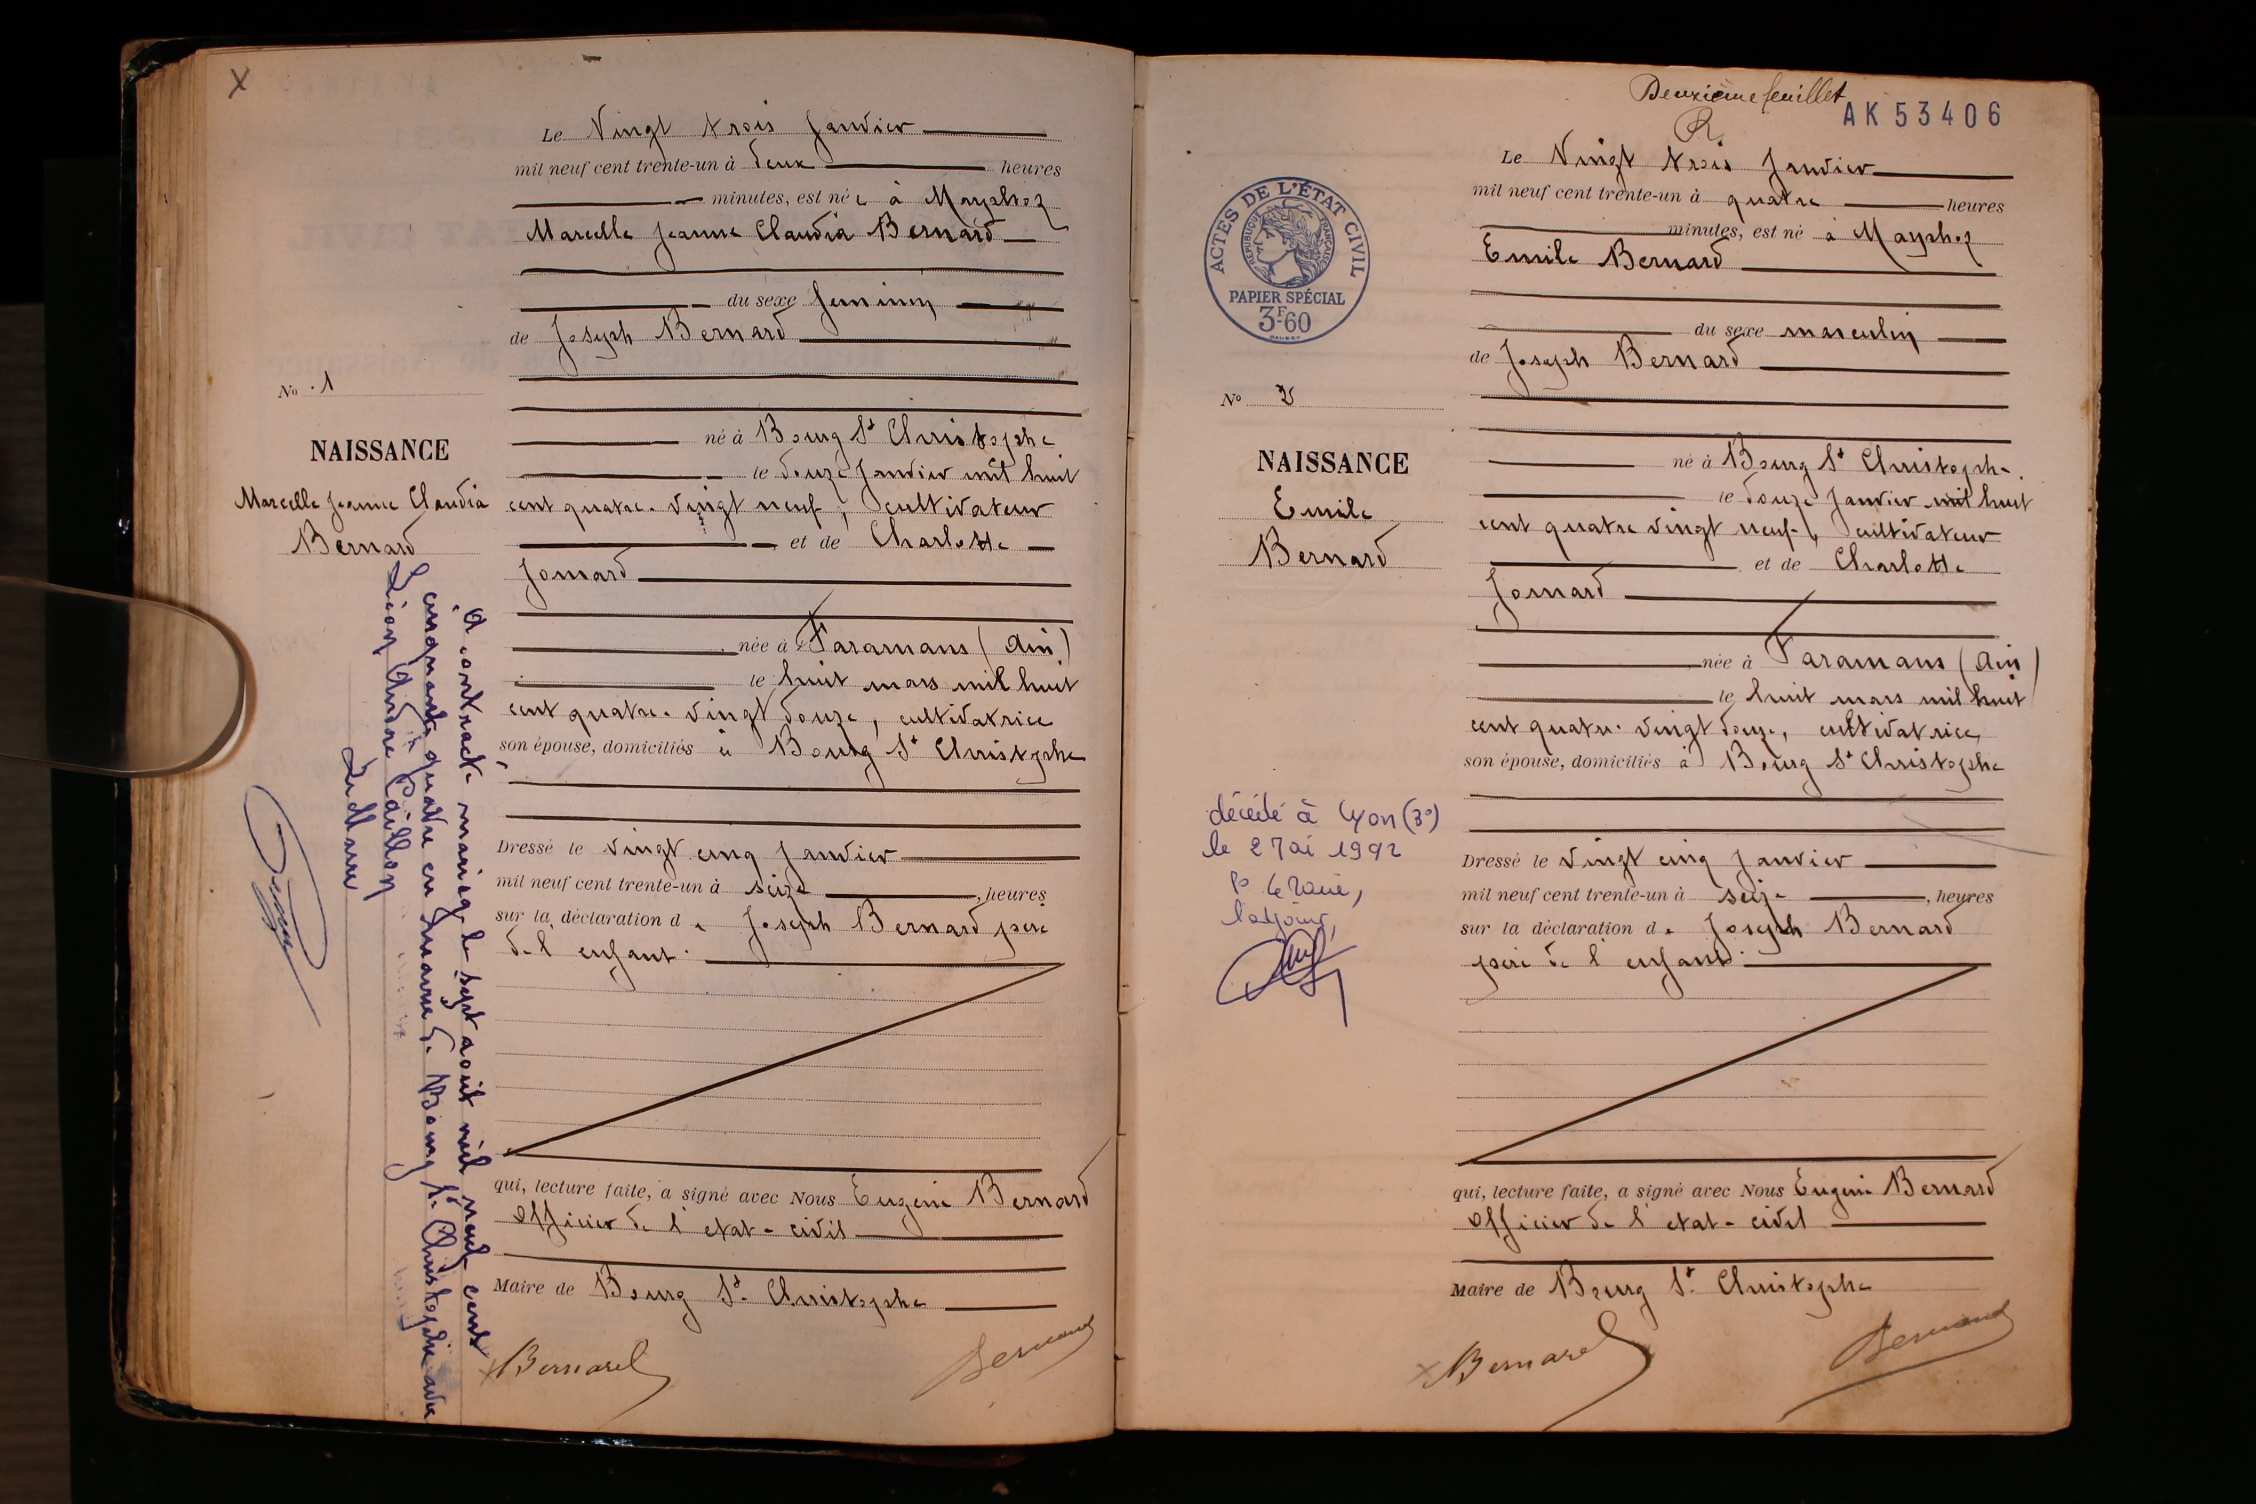 X
Le Vingt trois Janvier
mil neuf cent trente-un à deux heures
minutes, est née à Mayphoz
Marcelle Jeanne Claudia Bernard
du sexe feminin
de Joseph Bernard
né à Bourg St Christophe
le douze Janvier mil huit
cent quatre-vingt neuf, cultivateur
et de Charlotte
Jomard
née à Faramans (Ain)
le huit mars mil huit
cent quatre-vingt douze, cultivatrice
son épouse, domiciliés à Bourg St Christophe
Dressé le vingt cinq Janvier
mil neuf cent trente-un à seize, heures
sur la déclaration de Joseph Bernard père
de l'enfant.
qui, lecture faite, a signé avec Nous Eugène Bernard
officier de l'etat-civil
Maire de Bourg St Christophe
Bernard
Bernard
No 1
NAISSANCE
Marcelle Jeanne Claudia
Bernard
A contracté mariage le sept août mil neuf cent
cinquante quatre en mairie de Bourg St Christophe avec
Léon André Paillon
Le Maire
Deuxième feuillet
AK 53406
ACTES DE L'ÉTAT CIVIL
REPUBLIQUE FRANÇAISE
PAPIER SPÉCIAL
3F60
No 2
NAISSANCE
Emile
Bernard
décédé à Lyon (3e)
le 2 Mai 1992
P° le Maire,
l'adjoint,
Le Vingt trois Janvier
mil neuf cent trente-un à quatre heures
minutes, est né à Mayphoz
Emile Bernard
du sexe masculin
de Joseph Bernard
né à Bourg St Christophe
le douze Janvier mil huit
cent quatre vingt neuf, cultivateur
et de Charlotte
Jomard
née à Faramans (Ain)
le huit mars mil huit
cent quatre-vingt douze, cultivatrice
son épouse, domiciliés à Bourg St Christophe
Dressé le vingt cinq Janvier
mil neuf cent trente-un à seize, heures
sur la déclaration de Joseph Bernard
père de l'enfant.
qui, lecture faite, a signé avec Nous Eugène Bernard
officier de l'etat-civil
Maire de Bourg St Christophe
Bernard
Bernard